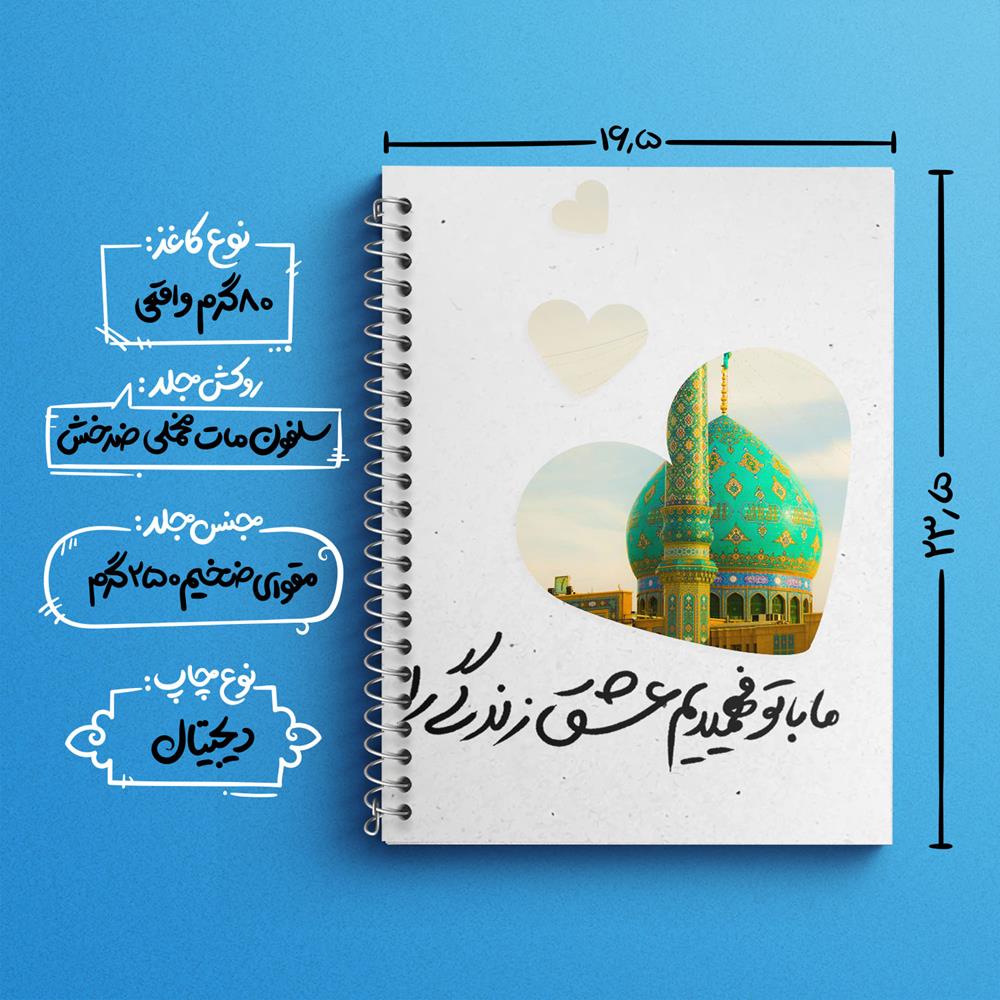 ۱۶٫۵
۲۳٫۵
نوع کاغذ:
۸۰گرم واقعی
روکش جلد:
سلفون مات مخملی ضدخش
جنس جلد:
مقوای ضخیم ۲۵۰گرم
نوع چاپ:
دیجیتال
ما با تو فهمیدیم عشق زندگی را